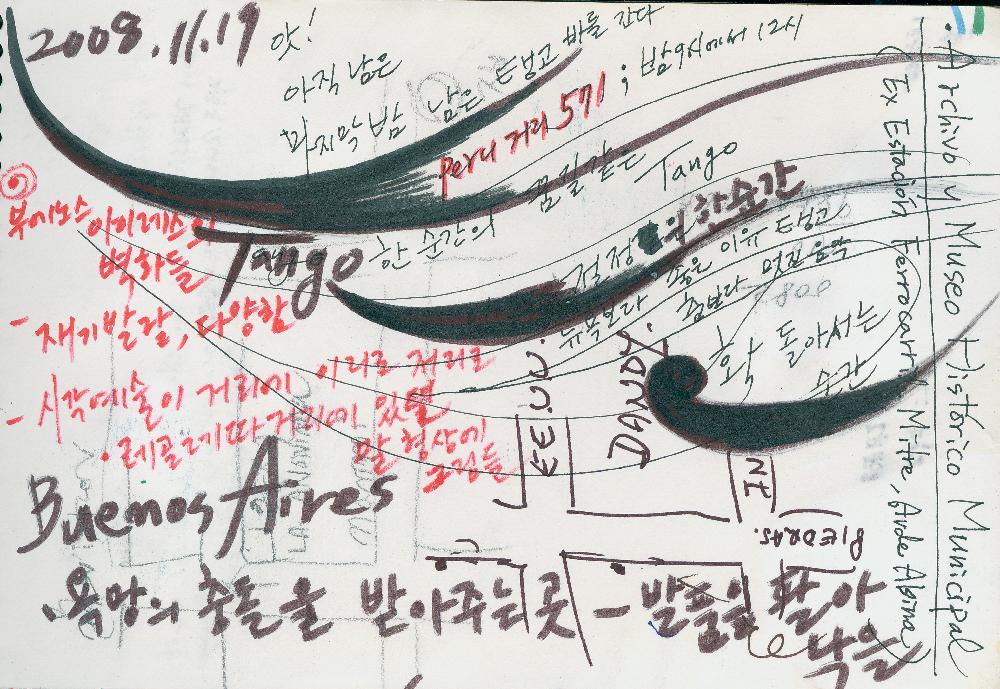 2008.11.19
앗!
아직 남은
마지막 밤 남은 탱고 바를 간다
peru 거리 571 ; 밤 9시에서 12시
꿈길같은 Tango
부에노스 아이레스의
벽화들
Tango 한 순간의
절정 원 한순간
뉴욕보다 좋은 이유 탱고
춤보다 멋진 음악
훅 돌아서는
순간
- 재기발랄, 다양함
- 시각예술이 거리에 이리로 저리로
· 레골레따 거리에 있던
말 형상에
그림들
EE.UU.
INDE
PIEDRAS.
Buenos Aires
. 욕망의 충돌을 받아주는 곳 - 발품을 팔아
· Archivo y Museo Histórico Municipal
(Ex Estación Ferrocarril Mitre, Avde Alsina)